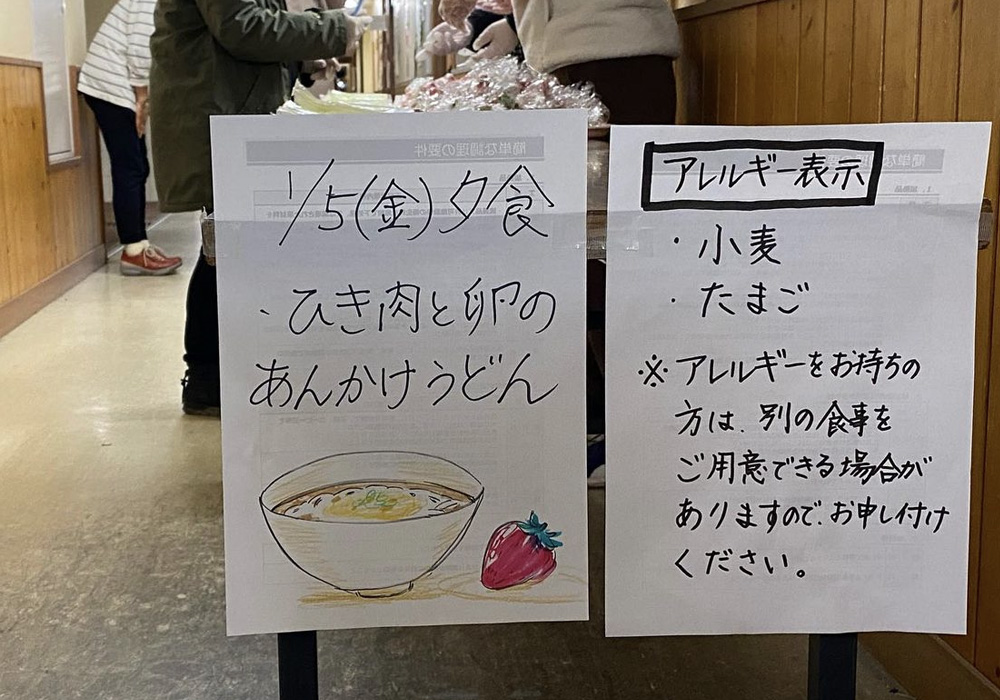 1/5(金)夕食
・ひき肉と卵の
あんかけうどん
アレルギー表示
・小麦
・たまご
※アレルギーをお持ちの
方は、別の食事を
ご用意できる場合が
ありますので、お申し付け
ください。
簡単な調理の要件